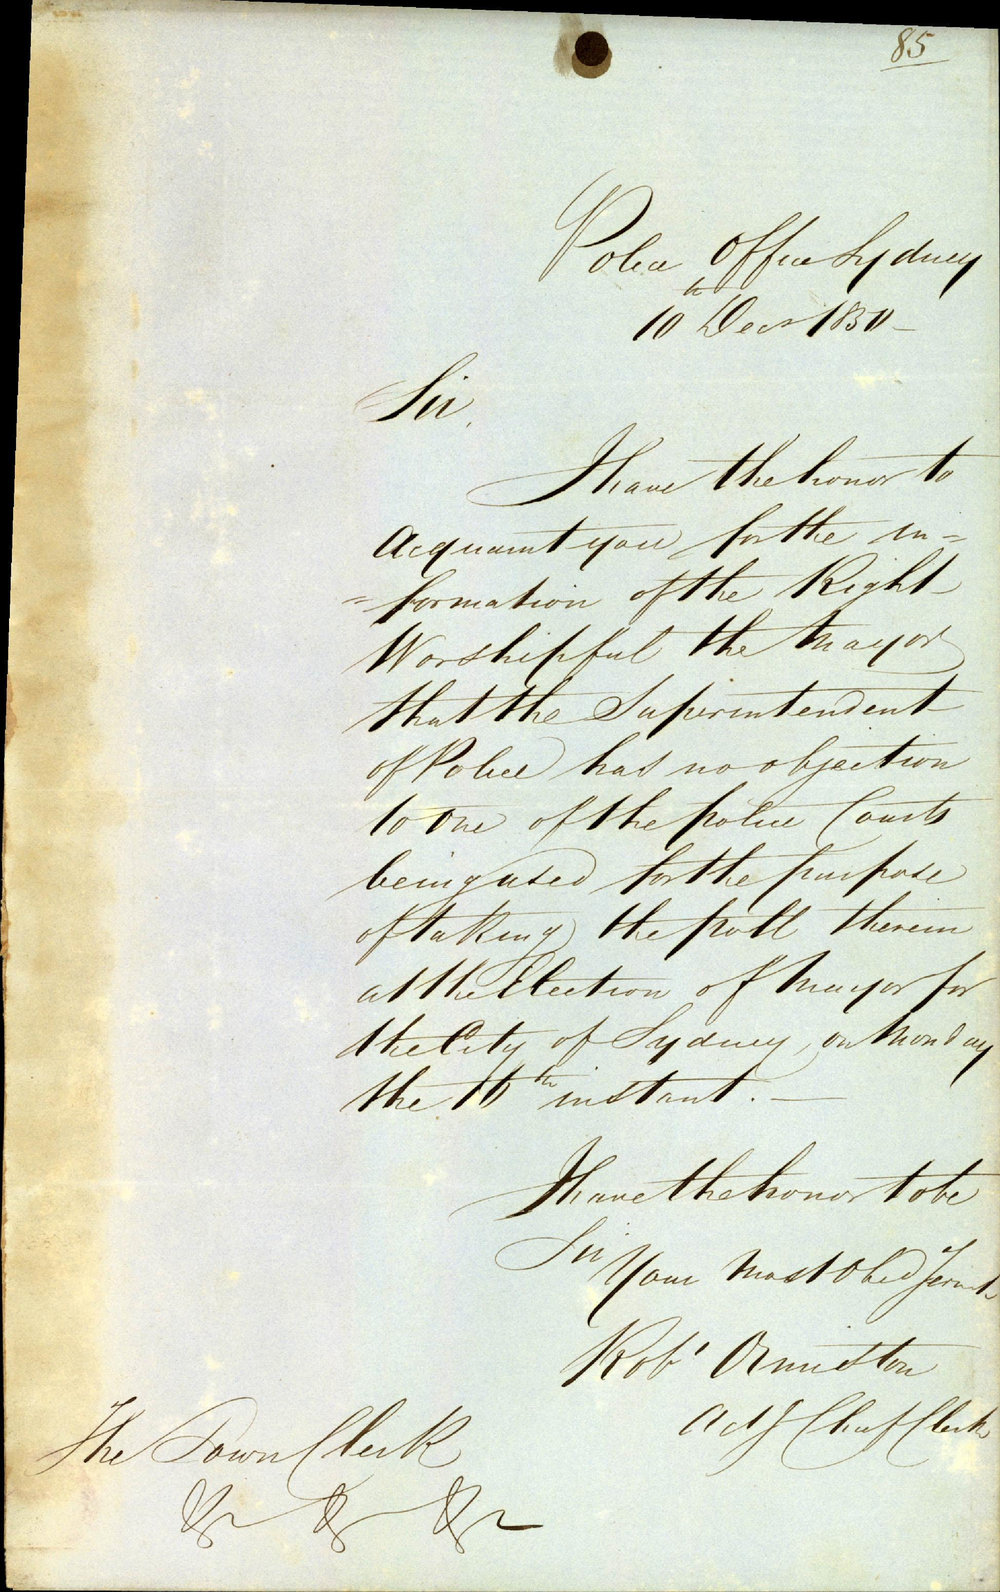 85
Police Office Sydney
10th Decr 1850 -
Sir,
I have the honor to
Acquaint you for the in=
=formation of the Right
Worshipful the Mayor
that the Superintendent
of Police has no objection
to One of the police Courts
being used for the purpose
of taking the poll therein
at the Election of Mayor for
the City of Sydney, on Monday
the 16th instant. —
I have the honor to be
Sir
Your Most Obed Servt
Robt Ormiston
Actg Chief Clerk
The Town Clerk
&c &c &c